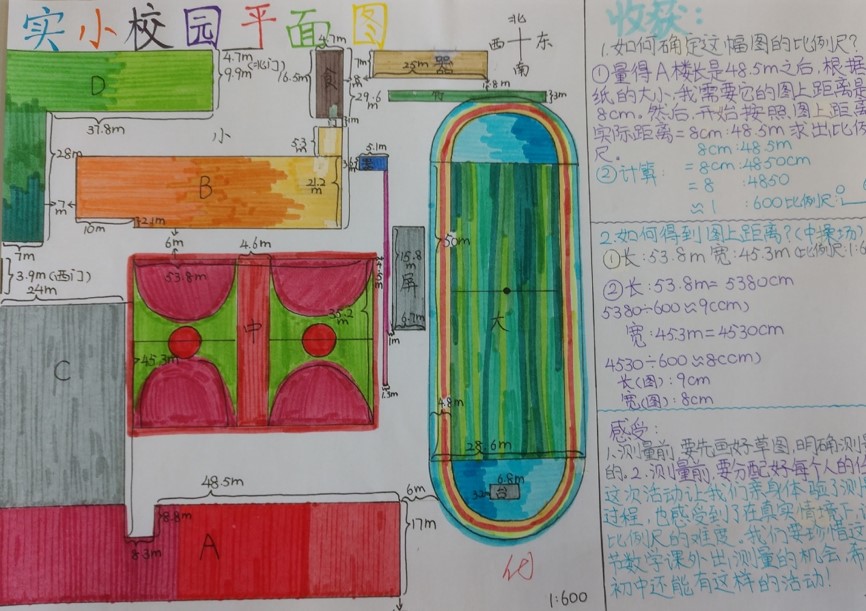 实小校园平面图
北
西 东
南
4.7m(北门)
9.9m
D
37.8m
28m
7m
小
4.7m
16.5m
食
7m
25m
器
8m
29.6m
竹
3m
1m
5.3m
5.1m
B
21.2m
7m
10m
2.1m
6m
3.9m(西门)
24m
C
53.8m
4.6m
中
35.2m
45.3m
15.8m
屏
6.7m
1m
1.5m
50m
大
4.8m
28.6m
6.8m
台
48.5m
8.8m
8.3m
A
6m
17m
1:600
收获:
1.如何确定这幅图的比例尺?
①量得A楼长是48.5m之后,根据
纸的大小,我需要它的图上距离是
8cm。然后,开始按照图上距离
实际距离=8cm:48.5m求出比例
尺。 8cm:48.5m
②计算: =8cm:4850cm
=8 :4850
≈1 :600 比例尺:
2.如何得到图上距离?(中操场)
①长:53.8m 宽:45.3m(比例尺1:6
②长:53.8m=5380cm
5380÷600≈9(cm)
宽:45.3m=4530cm
4530÷600≈8(cm)
长(图):9cm
宽(图):8cm
感受:
1.测量前,要先画好草图,明确测量
的。2.测量前,要分配好每个人的任
这次活动让我们亲身体验了测
过程,也感受到了在真实情境下,
比例尺的难度。我们要珍惜这
节数学课外出测量的机会,希
初中还能有这样的活动!